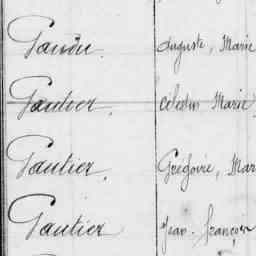 Gaudu. Auguste, Marie
Gautier. Célestin Marie
Gautier. Grégoire, Mar
Gautier Jean-françois